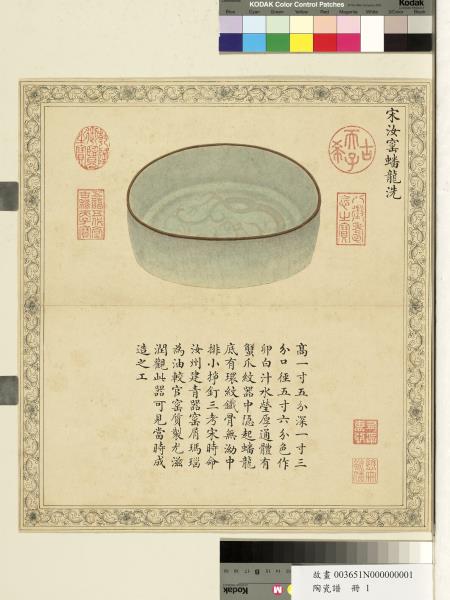 KODAK Color Control Patches
Kodak
Blue
Cyan
Green
Yellow
Red
Magenta
White
3/Color
Black
宋汝窯蟠龍洗
古希天子
八徵耄念之寶
乾隆御覽之寶
五福五代堂古稀天子寶
高一寸五分深一寸三
分口徑五寸六分色作
卵白汁水瑩厚通體有
蟹爪紋器中隱起蟠龍
底有環紋鐵骨無泑中
排小掙釘三考宋時命
汝州建青器窯屑瑪瑙
為油較官窯質製尤滋
潤觀此器可見當時成
造之工
B
M
故畫 003651N000000001
陶瓷譜 冊 1